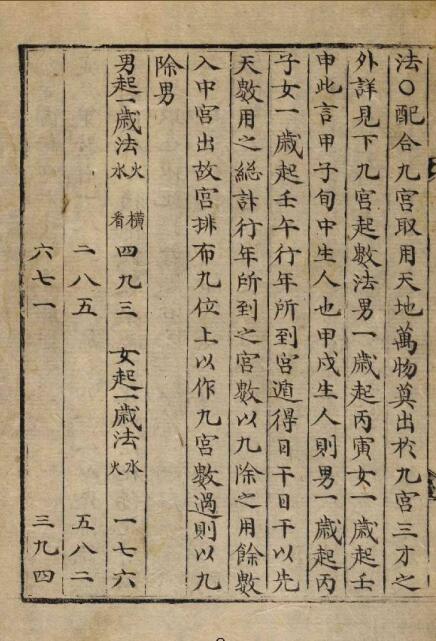 法○配合九宮取用天地萬物奠出於九宮三才之
外詳見下九宮起數法男一歲起丙寅女一歲起壬
申此言甲子旬中生人也甲戌生人則男一歲起丙
子女一歲起壬午行年所到宮遁得日干日干以先
天數用之總計行年所到之宮數以九除之用餘數
入中宮出故宮排布九位上以作九宮數過則以九
除男
男起一歲法 火水 橫看 四九三 女起一歲法 水火 一七六
二八五 五八二
六七一 三九四